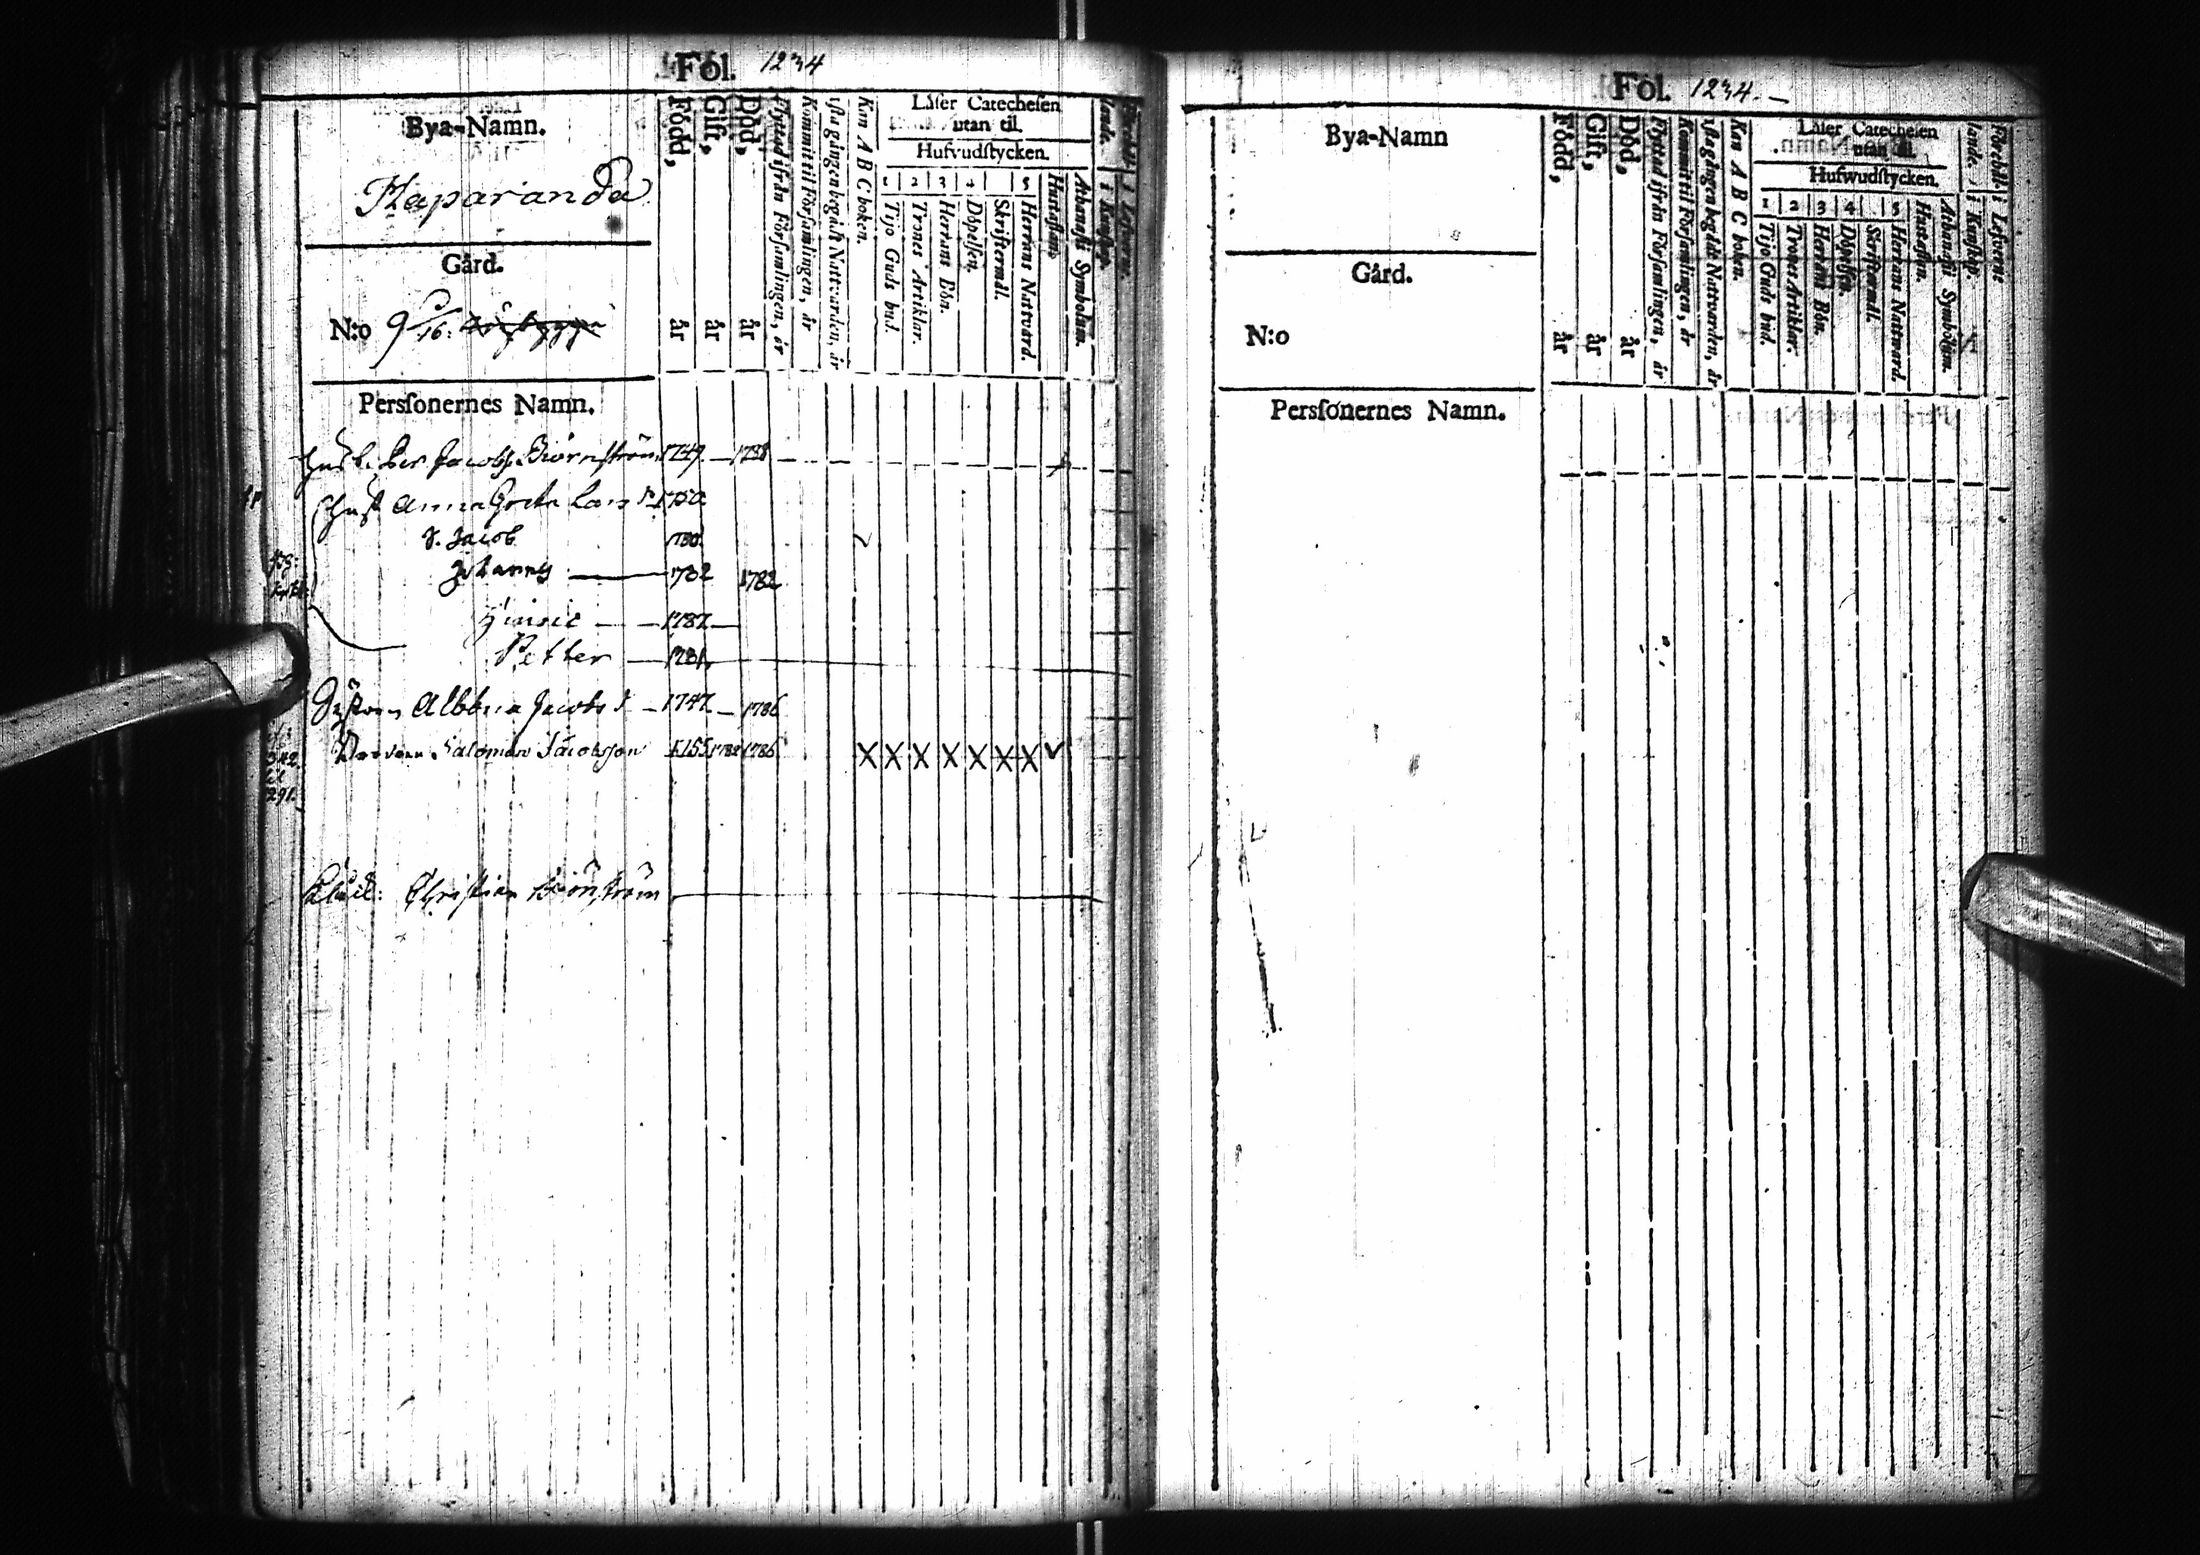 Fol. 1234
Bya-Namn.
Haparanda
Gård.
N:o 9 /16.
Född, år
Gift, år
Död, år
Flyttad ifrån Församlingen, år
Kommit til Församlingen, år
1sta gången begådt Nattvarden, år
Kan A B C boken.
Läser Catechesen
utan til.
Hufvudstycken.
1 2 3 4 5
Tijo Guds bud.
Trones Artiklar.
Herrans Bön.
Döpelsen.
Skriftermål.
Herrans Nattvard.
Hustaflan.
Athanasii Symbolum.
i Kunskap.
i Lefverne.
Personernes Namn.
Husb. Per Jacobs. Biörnström 1747 1788
Hust Anna Greta Lars d. 1750
S. Jacob 1780
Johannes 1782 1782
Hinric 1787
Petter 1781
Systern Albbria Jacobs d 1747 1786
Salomon Jacobsson 1755 1782 1786
X X X X X X X
291.
Christian Biörnström
Fol. 1234.
Bya-Namn
Gård.
N:o
Född, år
Gift, år
Död, år
Flyttad ifrån Församlingen, år
Kommit til Församlingen, år
1sta gången begådt Nattvarden, år
Kan A B C boken.
Läser Catechesen
utan til.
Hufwudstycken.
1 2 3 4 5
Tijo Guds bud.
Trones Artiklar.
Herrans Bön.
Döpelsen.
Skriftermål.
Herrans Nattward.
Hustaflan.
Athanasii Symbolum.
i Kunskap.
i Lefverne
Personernes Namn.